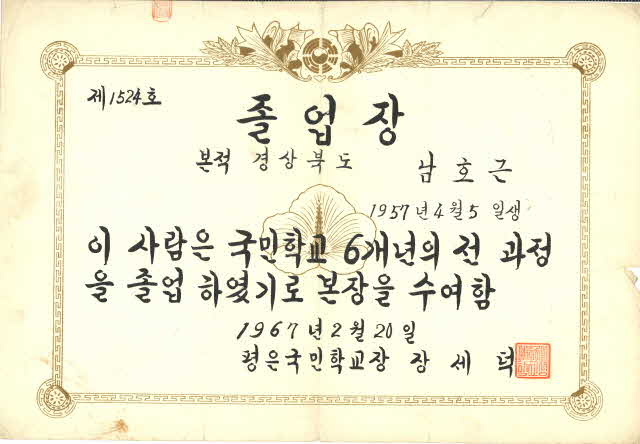 제1524호
졸업장
본적 경상북도 남호근
1957년4월5일생
이 사람은 국민학교 6개년의 전 과정
을 졸업 하였기로 본장을 수여함
1967년2월20일
평은국민학교장 장세덕